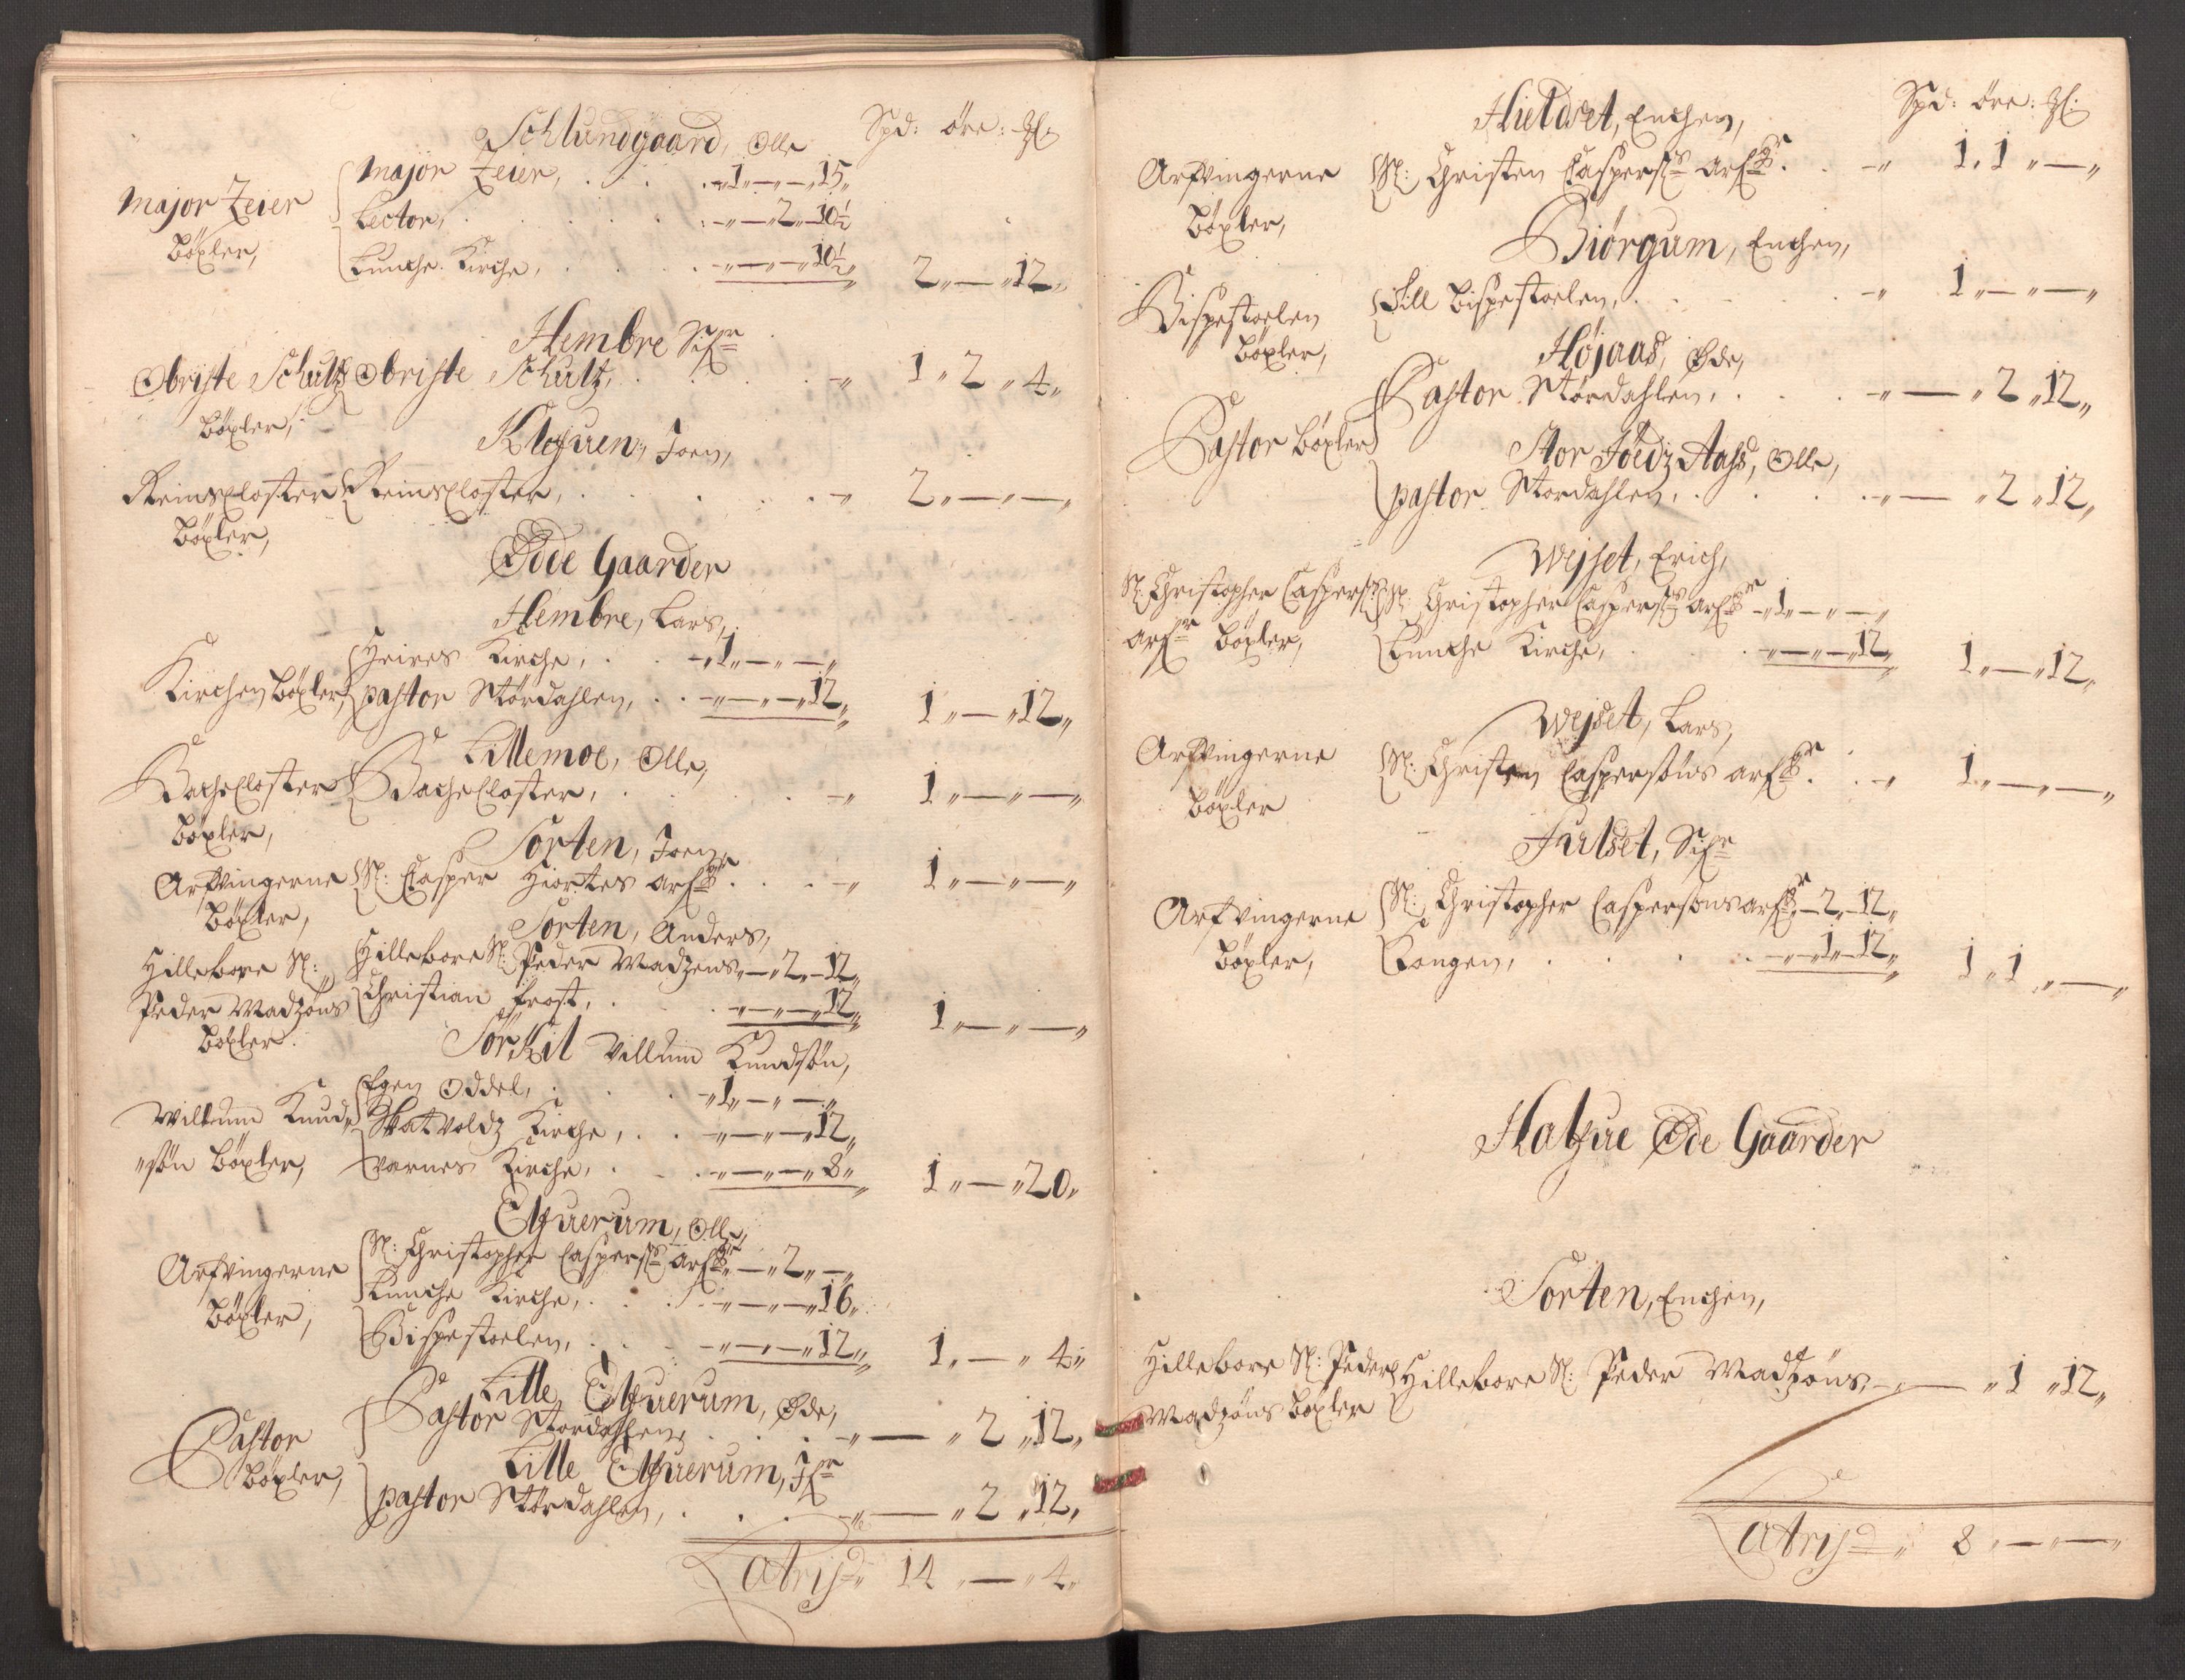 Schlundgaard, Olle Spd: öre: ℔
Major Zeier Bøxler, Major Zeier, . . . „1„—„—„15„
Lector, . . . „—„2„10½
Lunche Kirche, . . . „—„—„10½„ 2„—„12„
Hembre Sifr
Obriste Schultz Bøxler, Obriste Schultz, . . . „ 1„2„4„
Klefuen, Joen,
Reinscloster Bøxler, Reinscloster, . . . „ 2„—„—„
Øde Gaarder
Hembre, Lars,
Kirchen Bøxler, Heires Kirche, . . „1„—„—„
pastor Størdahlen, . . „—„—„12„ 1„—„12„
Lillemoe, Olle,
Bachecloster Bøxler, Bachecloster, . . . „ 1„—„—„
Sorten, Joen,
Arfvingerne Bøxler, Sl: Casper Hiortes arfgr . . . „ 1„—„—„
Sorten, Anders,
Hillebore Sl: Peder Madzøns Bøxler. Hillebore Sl: Peder Madzens „—„2„12„
Christian Frost, . „—„—„12„ 1„—„—„
Sørkil Villum Knudsøn,
Willum Knud„ Egen Oddel, . . „1„—„—„
„søn Bøxler, Skatvoldz Kirche, . . „—„—„12„
Warnes Kirche, . . „—„—„8„ 1„—„20„
Elfuerum, Olle,
Arfvingerne Bøxler, Sl: Christopher Caspersens arfgr „—„2„—„
Lunche Kirche, . . „—„—„16„
Bispestoelen, . . „—„—„12„ 1„—„4„
Lille Elfuerum, Øde,
Pastor Bøxler, Pastor Stordahlen, . . „—„2„12„
Lille Elfuerum, Ifr
pastor Størdahlen, . . . „—„2„12„
Latris „ 14„—„4„
Spd: öre: ℔
Hieldset, Enchen,
Arfvingerne Bøxler, Sl: Christen Caspersens arfgr . . „ 1„1„—„
Biørgum, Enchen,
Bispestoelen Bøxler, Till Bispestoelen, . . . „ 1„—„—„
Højaas, Øde,
Pastor Bøxler Pastor Størdahlen, . . . „—„2„12„
Stor Foedz Aahs, Olle,
pastor Stordahlen, . . . „—„2„12„
Wejset, Erich,
Sl: Christopher Caspersens arfr Bøxler, Sl: Christopher Caspersens arfgr „1„—„—„
Lunche Kirche, . . „—„—„12„ 1„—„12„
Wejset, Lars,
Arfvingerne Bøxler Sl: Christen Caspersøns arfgr . . „ 1„—„—„
Julset, Sifr
Arfvingerne Bøxler, Sl: Christopher Caspersons arfgr „—2„12„
Kongen, . . . „—„1„12„ 1„1„—„
Halfue Øde Gaarder
Sorten, Enchen,
Hillebore Sl: Peder Madzøns Bøxler Hillebore Sl: Peder Madzøns, „—„1„12„
Latris „ 8„—„—„